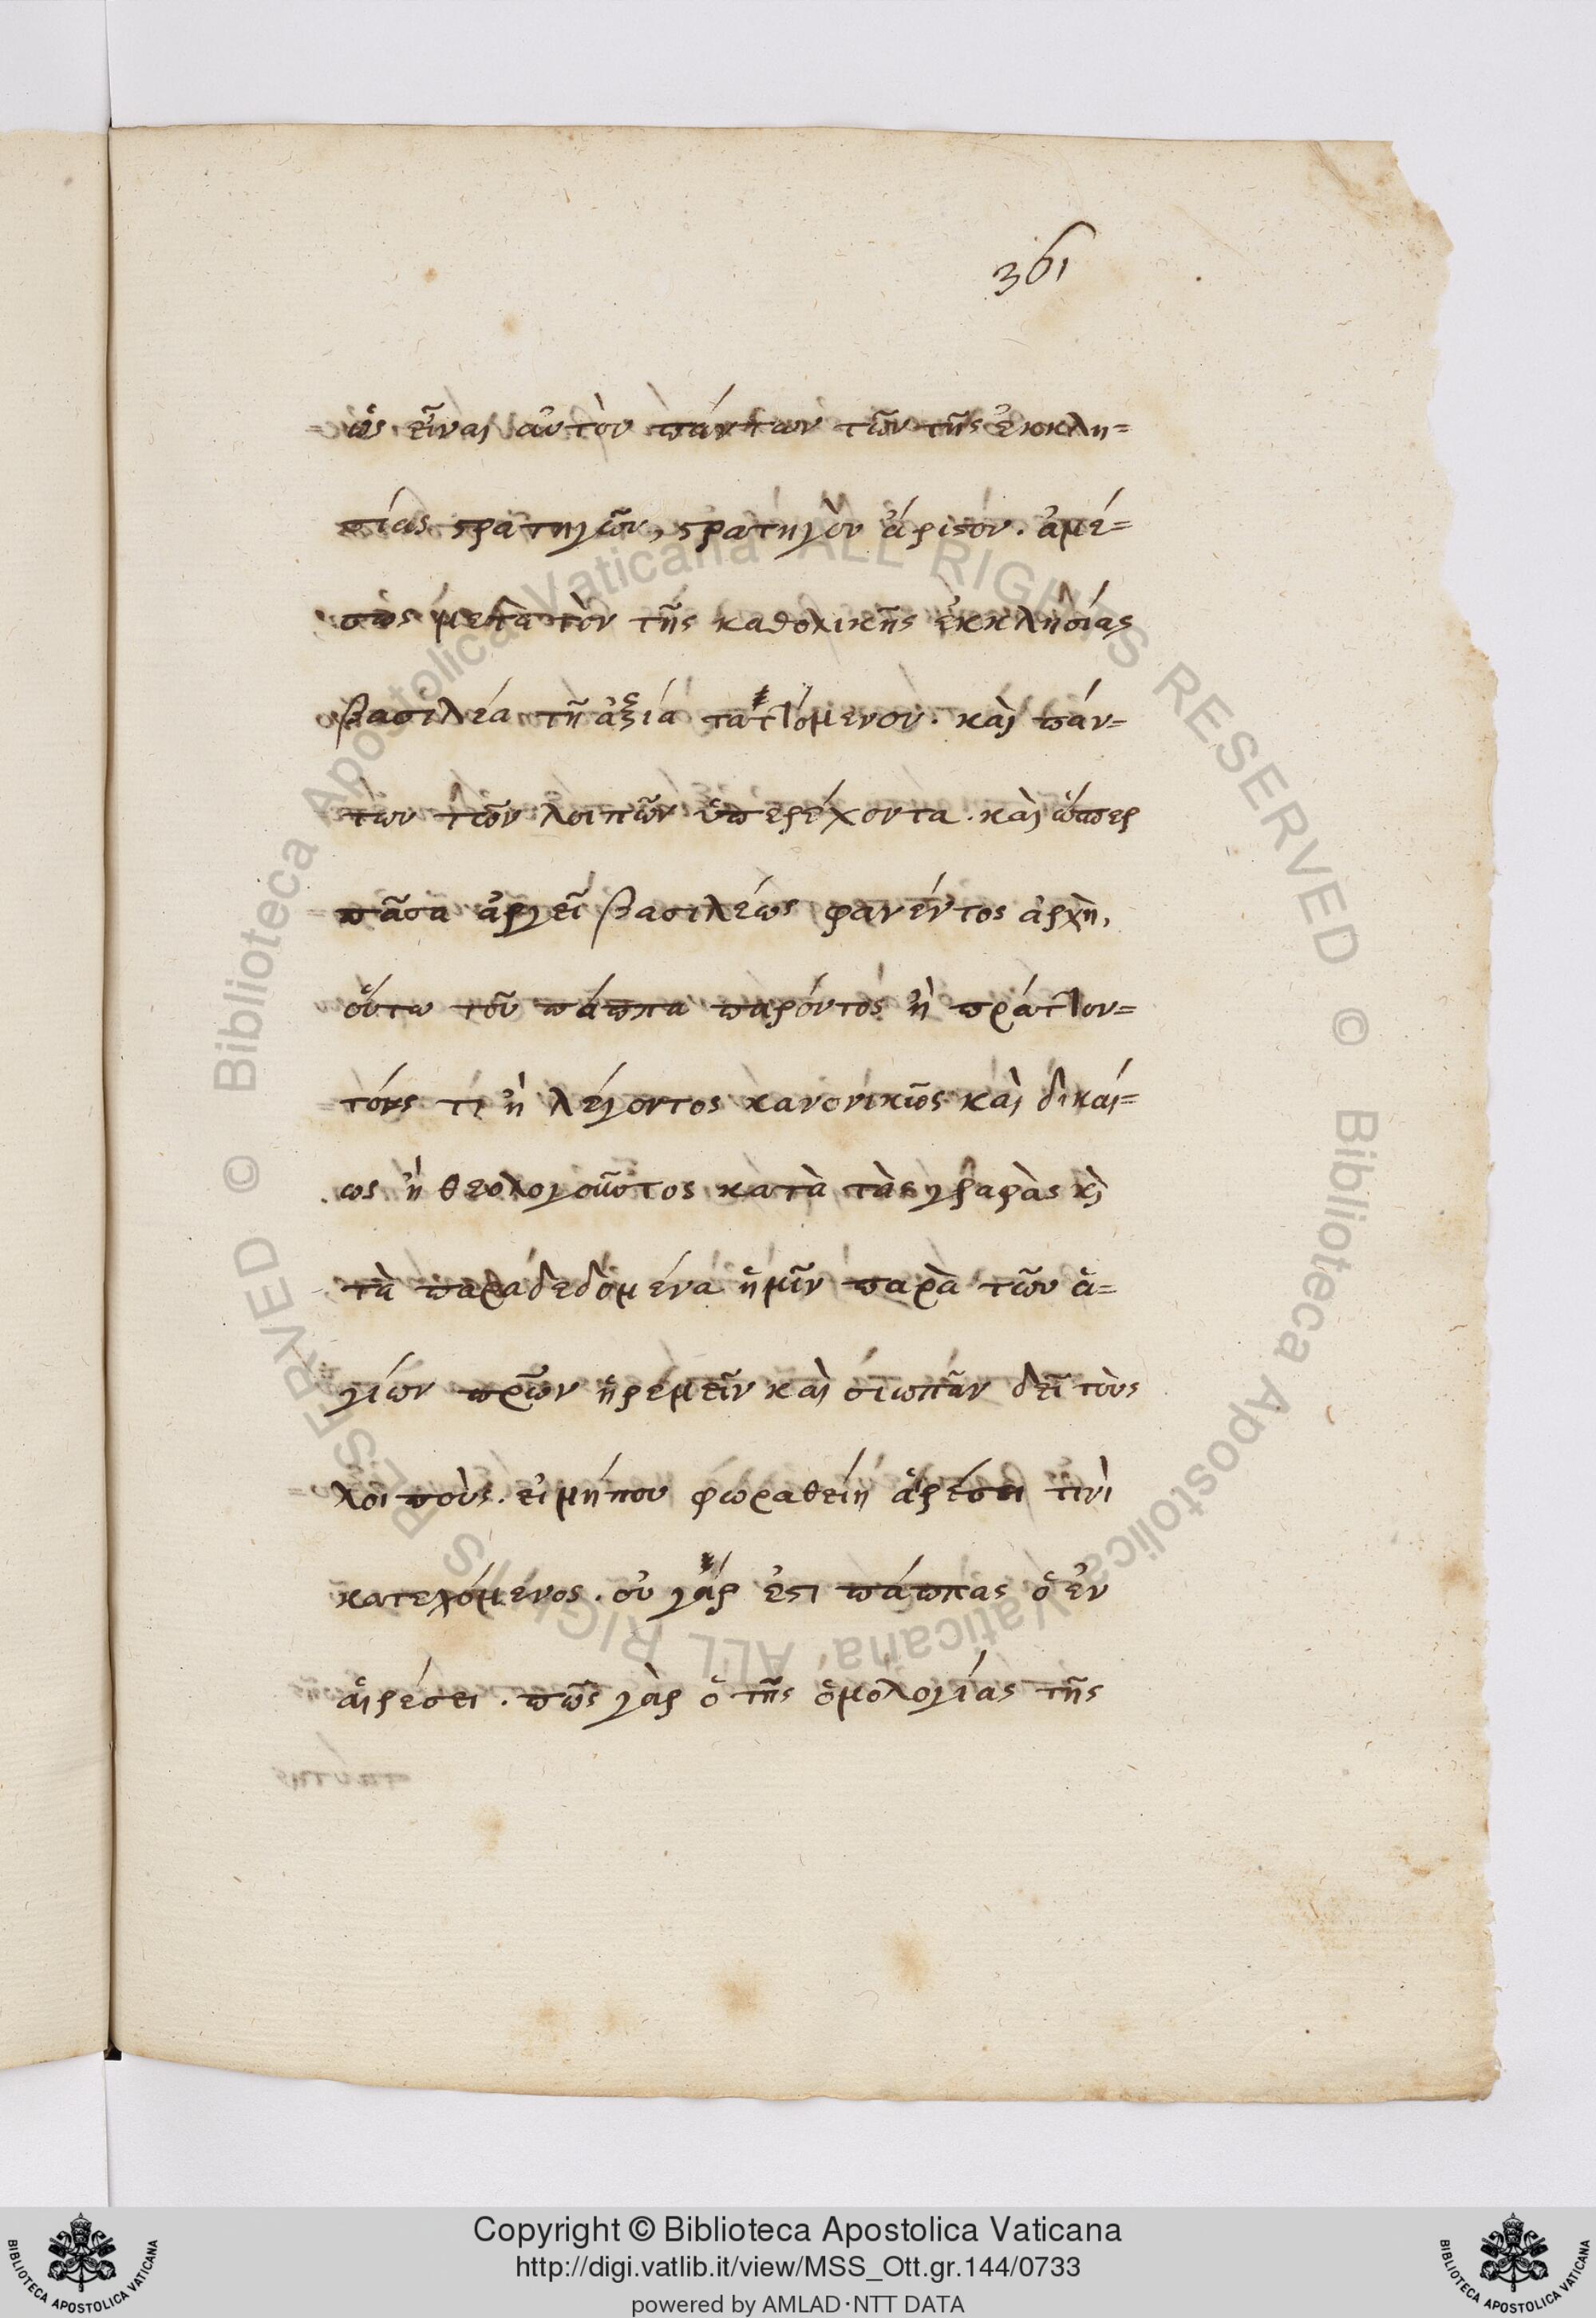 361
ὡς εἶναι αὐτὸν πάντων τῶν τῆς ἐκκλη=
σίας στρατηγῶν, στρατηγὸν ἄριστον. ἀμέ=
σως μετὰ τὸν τῆς καθολικῆς ἐκκλησίας
βασιλέα τῇ ἀξία ταττόμενον. καὶ πάν=
των τῶν λοιπῶν ὑπερέχοντα. καὶ ὥσπερ
πᾶσα ἀργεῖ βασιλέως φανέντος ἀρχὴ,
οὕτω τοῦ πάππα παρόντος ἢ πράττον=
τός τι ἢ λέγοντος κανονικῶς καὶ δικαί=
ως ἢ θεολογοῦντος κατὰ τὰς γραφὰς κὶ
τὰ παραδεδομένα ἡμῖν παρὰ τῶν ἁ=
γίων πρῶν ἠρεμεῖν καὶ σιωπᾶν δεῖ τοὺς
λοιποὺς. εἰ μήπου φωραθείη αἱρέσει τινὶ
κατεχόμενος. οὐ γάρ ἐστι πάππας ὁ ἐν
αἱρέσει. πῶς γὰρ ὁ τῆς ὁμολογίας τῆς
© Biblioteca Apostolica Vaticana, ALL RIGHTS RESERVED © Biblioteca Apostolica Vaticana, ALL RIGHTS RESERVED
Copyright © Biblioteca Apostolica Vaticana
http://digi.vatlib.it/view/MSS_Ott.gr.144/0733
powered by AMLAD·NTT DATA
BIBLIOTECA APOSTOLICA VATICANA
BIBLIOTECA APOSTOLICA VATICANA